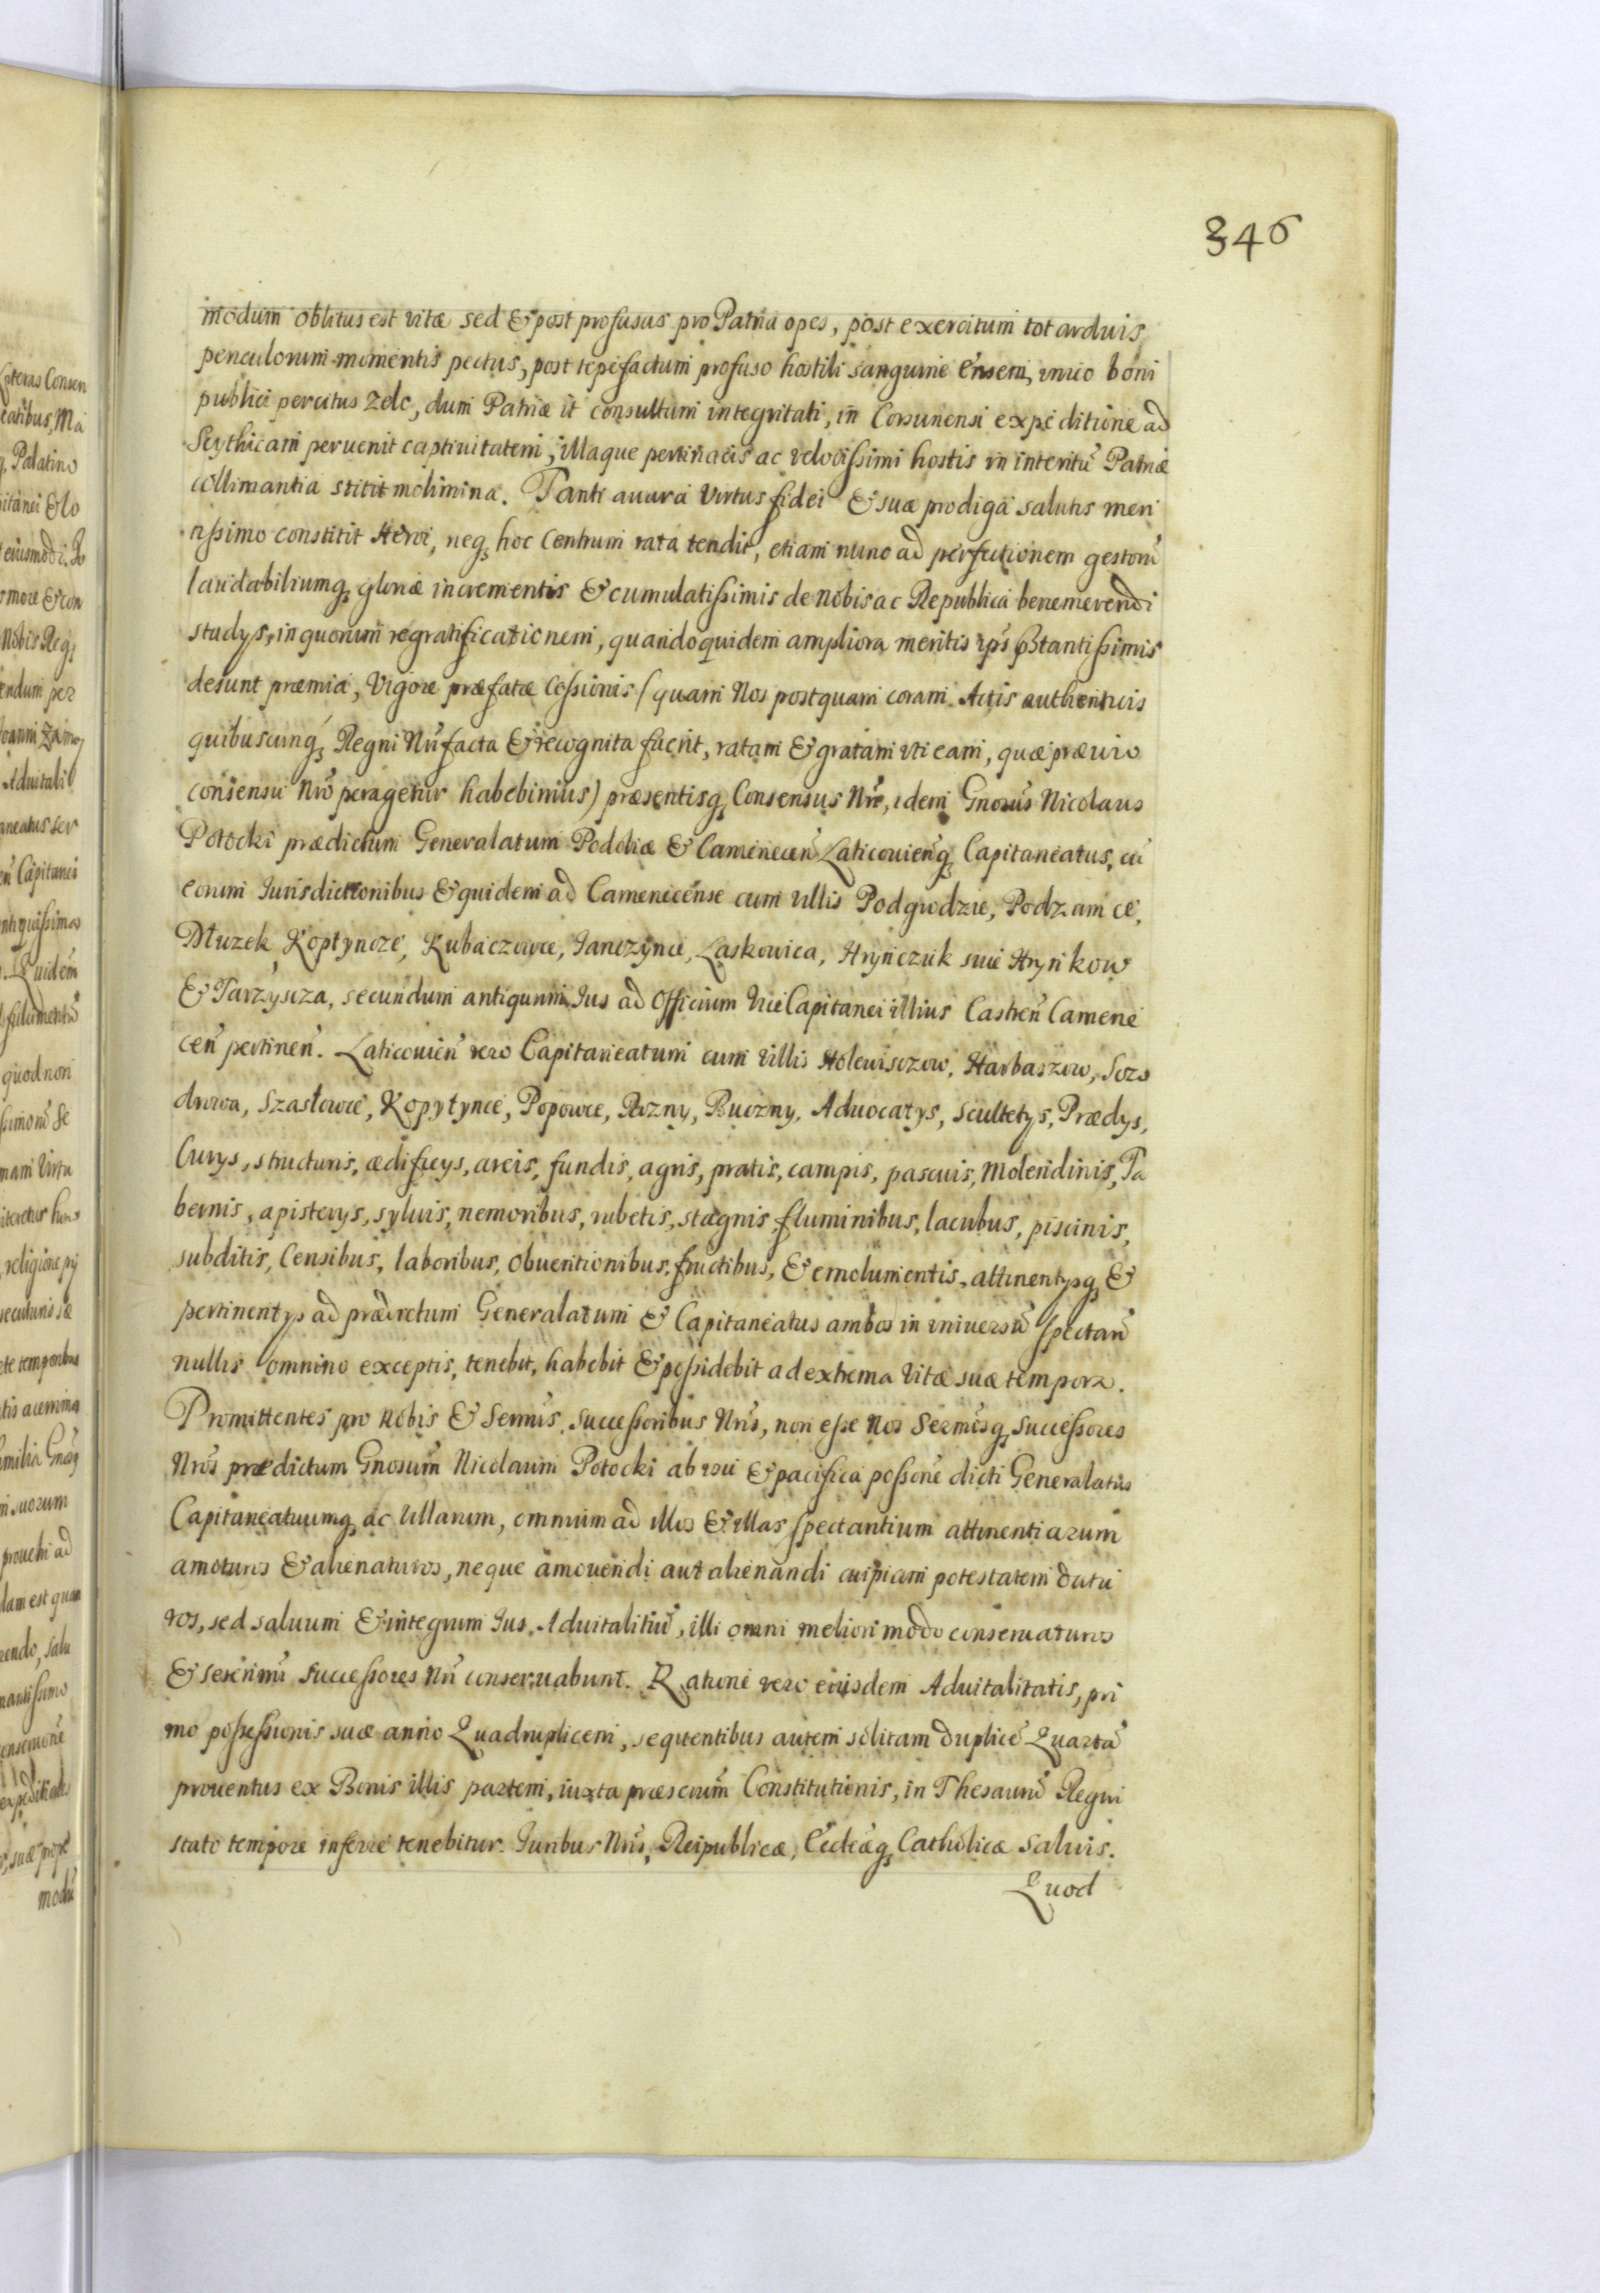 346
modum oblitus est vitæ sed & post profusas pro Patria opes, post exercitum tot arduis
periculorum momentis pectus, post tepefactum profuso hostili sanguine Ensem, unico boni
publici percitus Zelo, dum Patriæ it consultum integritati, in Corsunensi expeditione ad
Scythicam peruenit captiuitatem, illaque pertinacis ac velocissimi hostis in interitũ Patriæ
collimantia stitit molimina. Tanti auara virtus fidei & suæ prodiga salutis meri
tissimo constitit Heroi, neq3 hoc Centrum rata tendit, etiam nunc ad perfectionem gestorũ
laudabiliumq3 gloriæ incrementis & cumulatissimis de Nobis ac Republica benemerendi
studys, in quorum regratificationem, quandoquidem ampliora meritis ips̃ p̃stantissimis
desunt præmia, Vigore præfatæ Cessionis (quam Nos postquam coram Actis authenticis
quibuscunq3 Regni Nri facta & recognita fuerit, ratam & gratam uti eam, quæ præuio
consensu Nro peragetur habebimus) præsentisq3 Consensus Nri, idem Gnosus Nicolaus
Potocki prædictum Generalatum Podoliæ & Camenecen̄ Laticouien̄q3 Capitaneatus, cũ
eorum Iurisdictionibus & quidem ad Camenecense cum villis Podgrodzie, Podzamcé,
Dłuzek, Koptyncze, Kubaczowce, Janczynce, Laskowica, Hrynczuk siue Hrynkow
& Tarzyscza, secundum antiquum Ius ad Officium ViceCapitanei illius Castren̄ Camene
cen̄ pertinen̄. Laticouien̄ vero Capitaneatum cum villis Holewsczow, Harbaszow, Sozo
drowa, Szastowce, Kopytynce, Popowce, Rozny, Buczny, Aduocatys, scultetys, Prædys,
Curys, structuris, ædificys, arcis, fundis, agris, pratis, campis, pascuis, Molendinis, Ta
bernis, apisterys, syluis, nemoribus, rubetis, stagnis fluminibus, lacubus, piscinis,
subditis, Censibus, laboribus, obuentionibus, fructibus, & emolumentis, attinentysq3 &
pertinentys ad prædictum Generalatum & Capitaneatus ambos in uniuersũ spectan̄
nullis omnino exceptis, tenebit, habebit & possidebit ad extrema vitæ suæ tempora.
Promittentes pro Nobis & Sermis Successoribus Nris, non esse Nos Sermosq3 Successores
Nros prædictum Gnosum Nicolaum Potocki ab usu & pacifica possone dicti Generalatus
Capitaneatuumq3 ac villarum, omnium ad illos & illas spectantium attinentiarum
amoturos & alienaturos, neque amouendi aut alienandi cuipiam potestatem datu
ros, sed saluum & integrum Ius Aduitalitiũ, illi omni meliori modo conseruaturos
& serenmi Successores Nri conseruabunt. Ratione vero eiusdem Aduitalitatis, pri
mo possessionis suæ anno Quadruplicem, sequentibus autem solitam duplicẽ Quartã
prouentus ex Bonis illis partem, iuxta præscrium Constitutionis, in Thesaurũ Regni
stato tempore inferre tenebitur. Iuribus Nris, Reipublicæ, Ecclæq3 Catholicæ saluis.
Quod